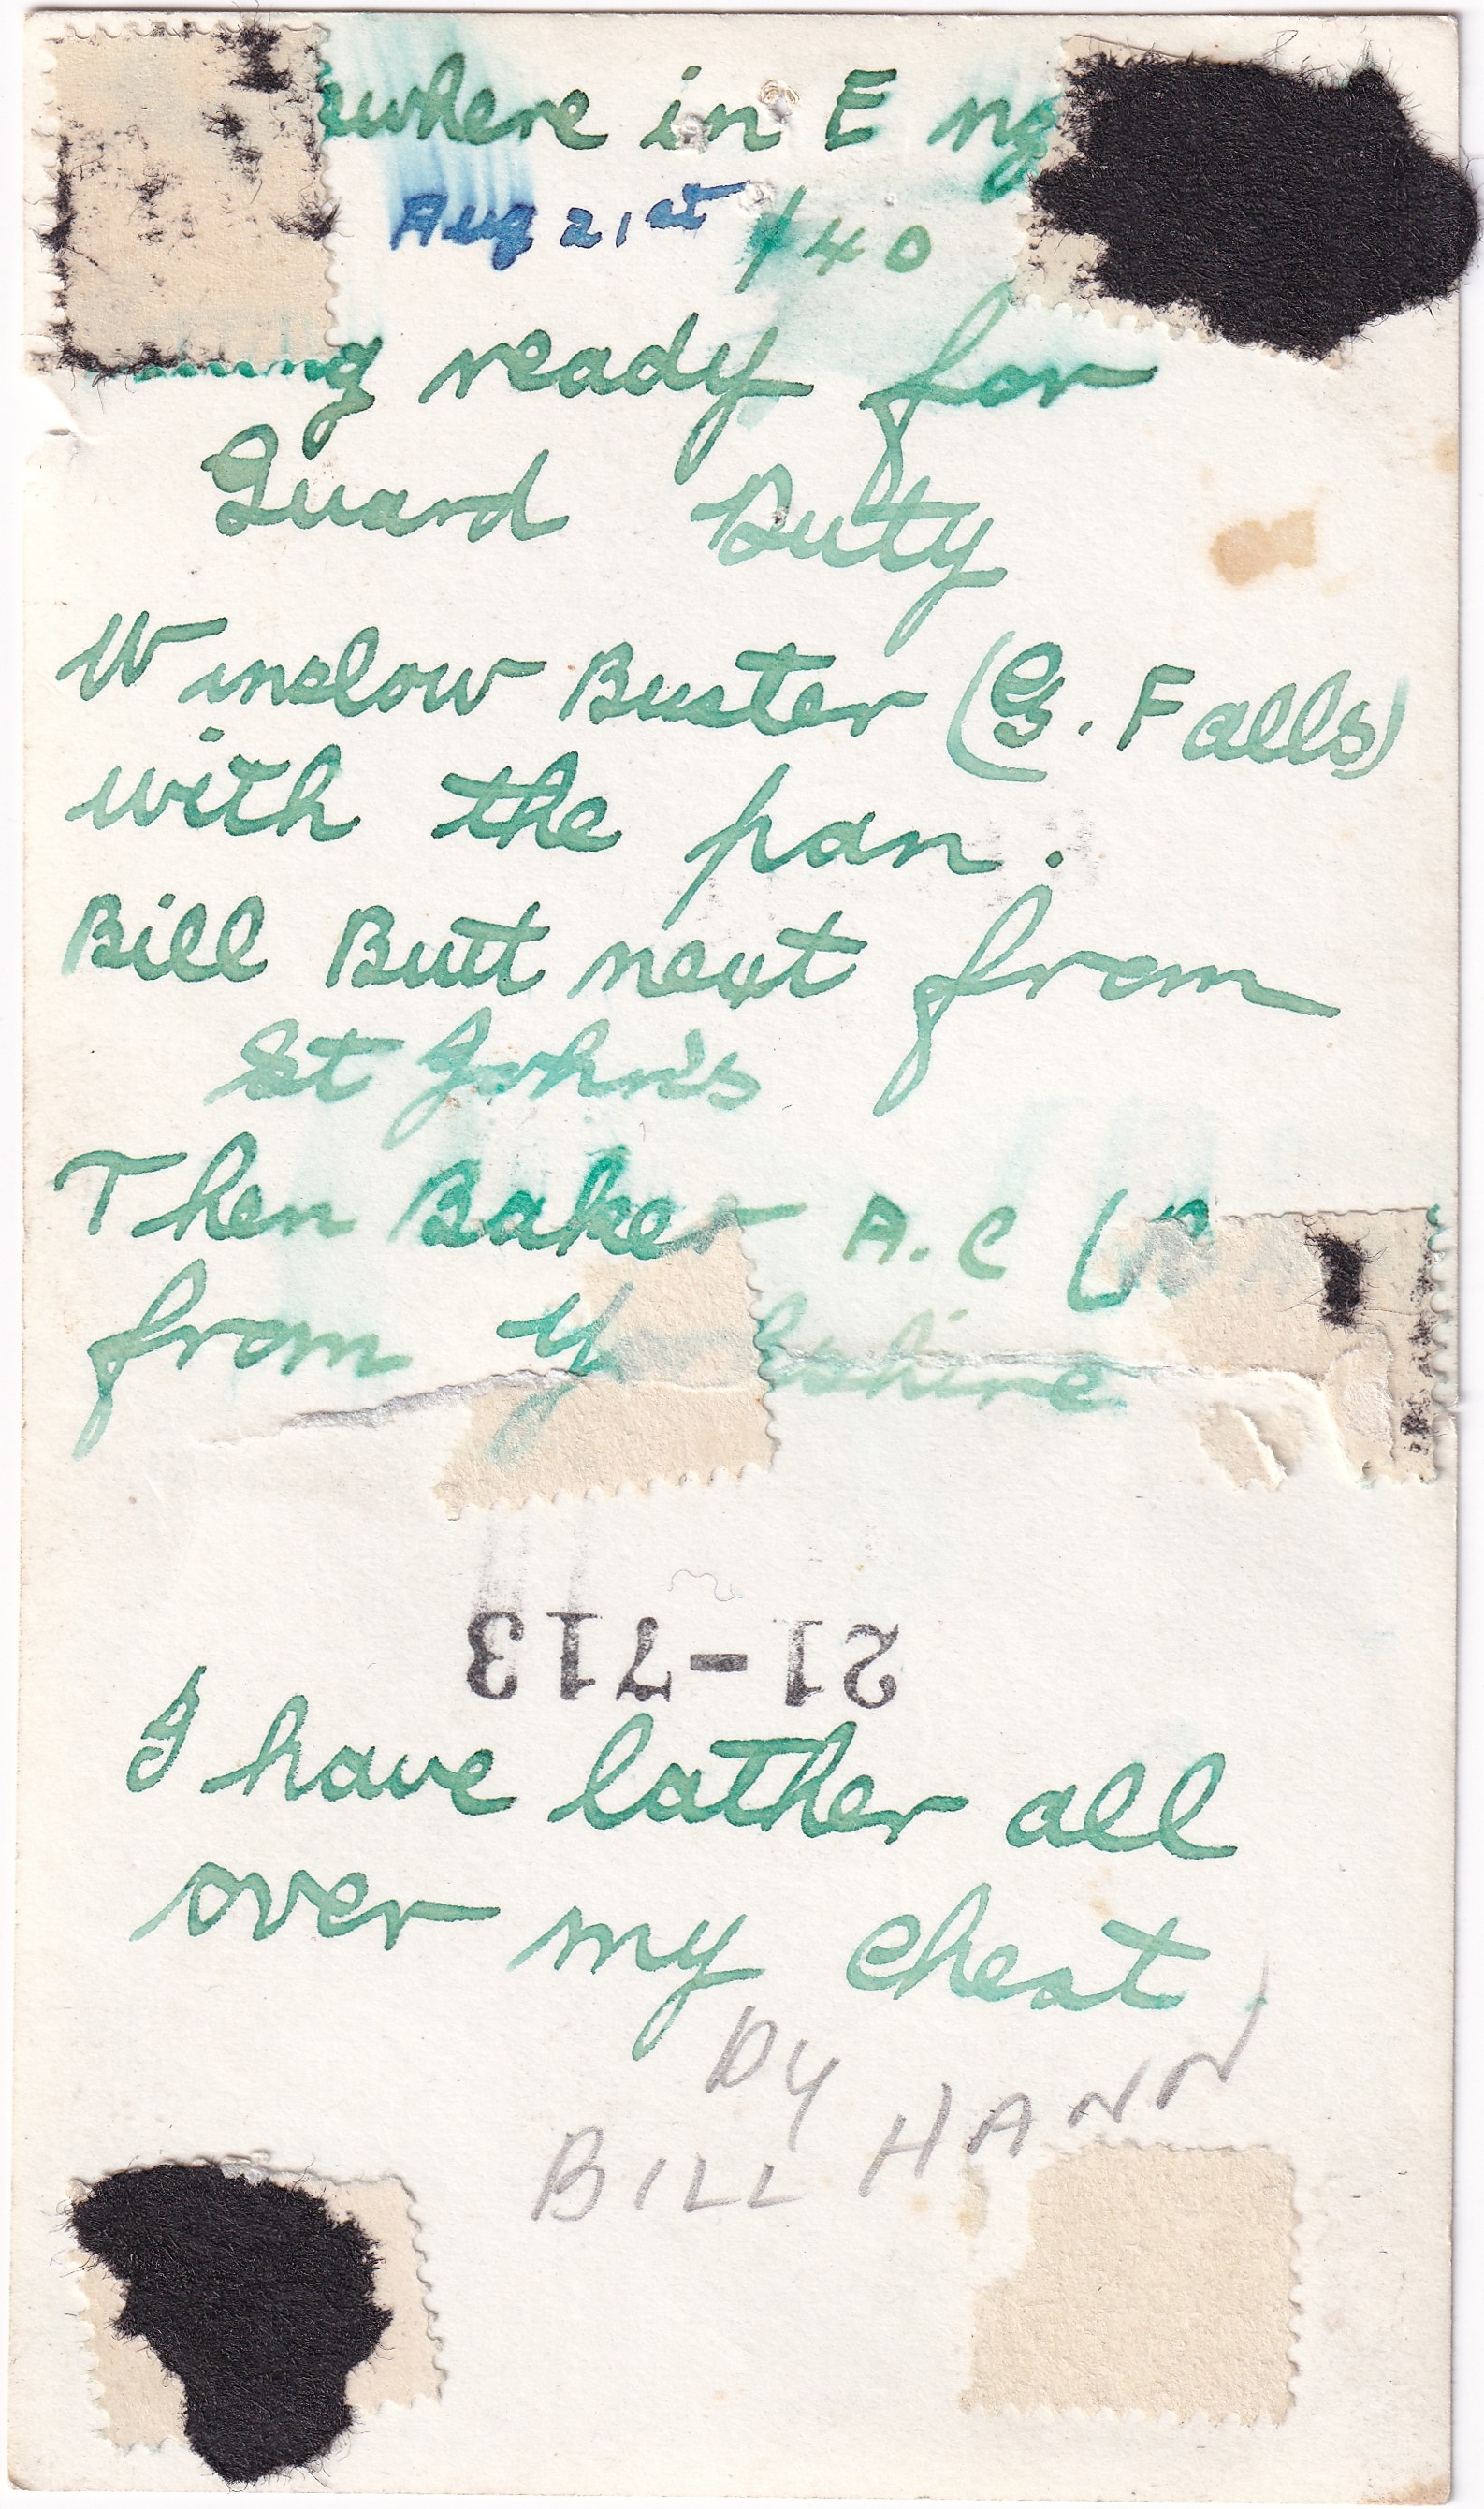 ewhere in Eng
Aug 21st /40
ready for
Guard Duty
Winslow Buster (G. Falls)
with the pan.
Bill Butt next from
St John's
Then Baker A.C (
from Yorkshire
21-713
I have lather all
over my chest.
by
BILL HANN